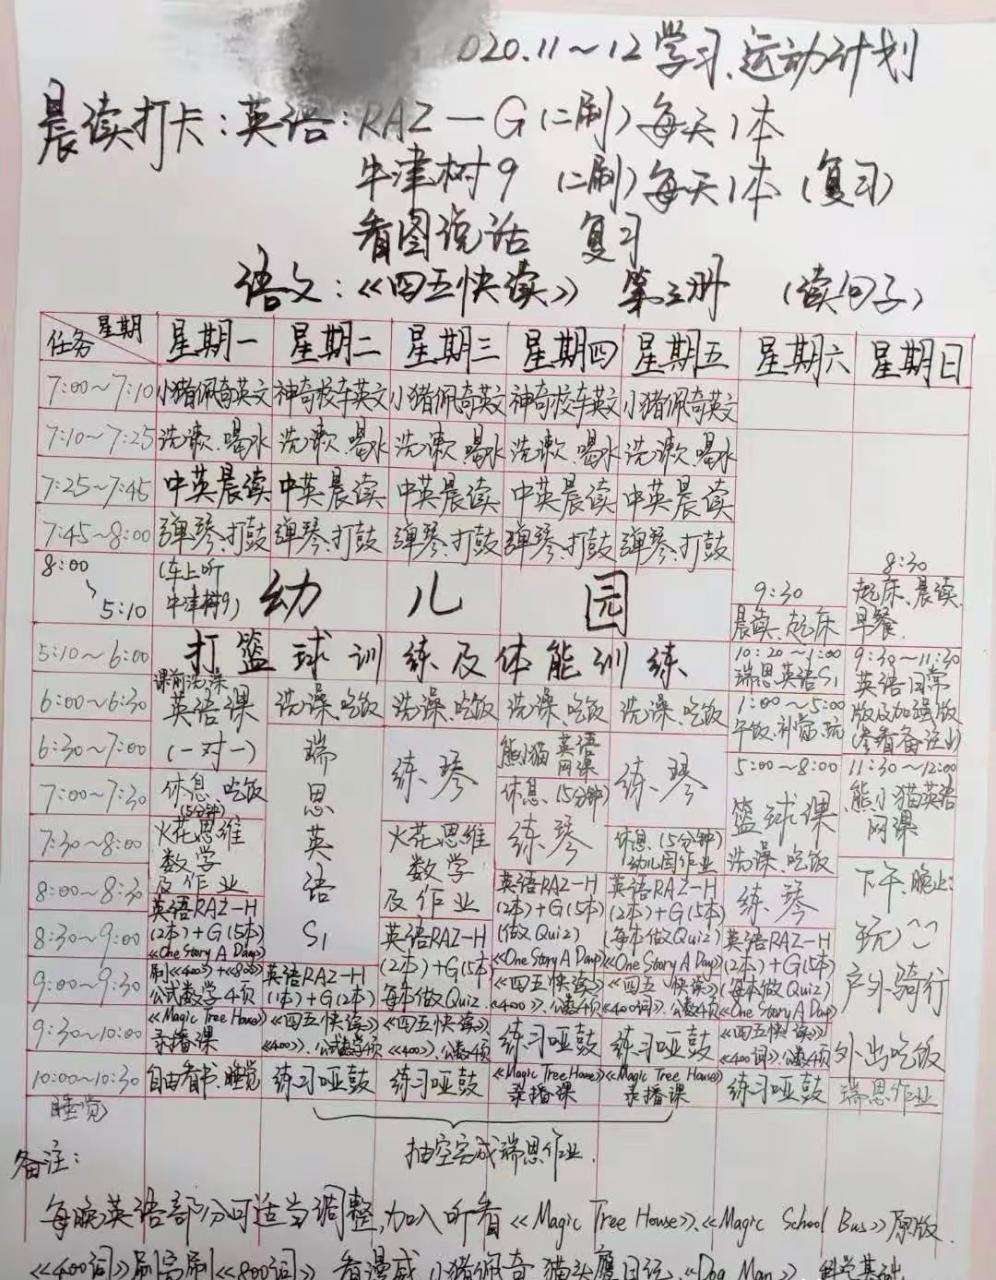 020.11～12学习、运动计划
晨读打卡：英语：RAZ—G（二刷）每天1本
牛津树9 （二刷）每天1本（复习）
看图说话 复习
语文：《四五快读》 第三册 （读句子）
任务 星期 星期一 星期二 星期三 星期四 星期五 星期六 星期日
7:00～7:10 小猪佩奇英文 神奇校车英文 小猪佩奇英文 神奇校车英文 小猪佩奇英文
7:10～7:25 洗漱、喝水 洗漱、喝水 洗漱、喝水 洗漱、喝水 洗漱、喝水
7:25～7:45 中英晨读 中英晨读 中英晨读 中英晨读 中英晨读
7:45～8:00 弹琴、打鼓 弹琴、打鼓 弹琴、打鼓 弹琴、打鼓 弹琴、打鼓
8:00
5:10
（车上听
牛津树9）
幼儿园
5:10～6:00 打篮球训练及体能训练
6:00～6:30
课前洗澡
英语课
（一对一）
洗澡、吃饭 洗澡、吃饭 洗澡、吃饭 洗澡、吃饭
6:30～7:00
7:00～7:30
7:30～8:00
8:00～8:30
8:30～9:00
9:00～9:30
9:30～10:00
10:00～10:30
睡觉
休息、吃饭
（15分钟）
火花思维
数学
及作业
英语RAZ-H
（2本）+G（5本）
《One Story A Day》
刷《400》+《800》
公式数学4项
《Magic Tree House》
录播课
自由看书、睡觉
瑞
思
英
语
S1
英语RAZ-H
（1本）+G（2本）
《四五快读》
《400》、公式数学4项
练习哑鼓
练琴
火花思维
数学
及作业
英语RAZ-H
（2本）+G（5本）
每本做Quiz
《四五快读》
《400》、公数4项
练习哑鼓
熊小猫英语
网课
休息（15分钟）
练琴
英语RAZ-H
（2本）+G（5本）
（做Quiz）
《One Story A Day》
《四五快读》
《400》、公数4项
练习哑鼓
《Magic Tree House》
录播课
练琴
休息（15分钟）
幼儿园作业
英语RAZ-H
（2本）+G（5本）
（每本做Quiz）
《One Story A Day》
《四五快读》
《400词》、公数4项
练习哑鼓
《Magic Tree House》
录播课
9:30
晨读、起床
10:20～1:00
瑞思英语S1
1:00～5:00
午饭、补觉、玩
5:00～8:00
篮球课
洗澡、吃饭
练琴
英语RAZ-H
（2本）+G（5本）
（每本做Quiz）
《One Story A Day》
《四五快读》
《400词》、公数4项
练习哑鼓
8:30
起床、晨读、
早餐
9:30～11:30
英语日常
版及加强版
11:30～12:00
熊小猫英语
网课
下午、晚上：
玩
户外骑行
外出吃饭
瑞思作业
抽空完成瑞思作业.
备注：
每晚英语部分可适当调整,加入听看《Magic Tree House》、《Magic School Bus》原版
《400词》刷完刷《800词》 看漫威、小猪佩奇、猫头鹰日记、《Dog Man》